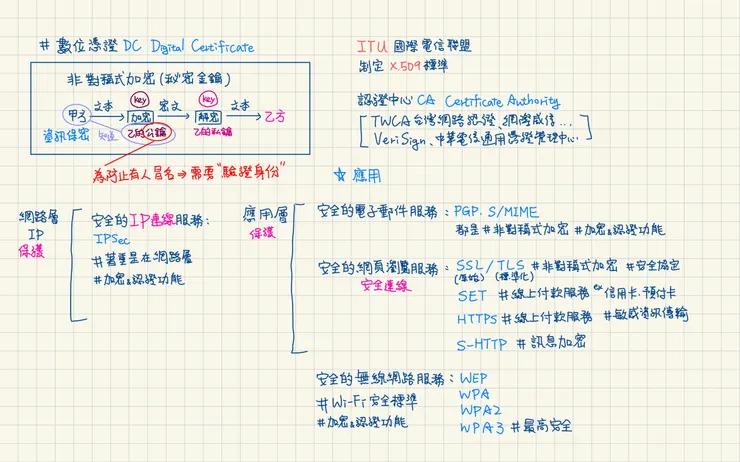 # 數位憑證 DC Digital Certificate
非對稱式加密(秘密金鑰)
key key
甲方 文本 加密 密文 解密 文本 乙方
資訊保密 知道 乙的公鑰 乙的私鑰
為防止有人冒名⇒需要"驗證身份"
ITU 國際電信聯盟
制定 X.509標準
認證中心 CA Certificate Authority
TWCA台灣網路認證、網際威信...
VeriSign、中華電信通用憑證管理中心
☆ 應用
網路層
IP
保護
安全的IP連線服務:
IPSec
#著重是在網路層
#加密&認證功能
應用層
保護
安全的電子郵件服務: PGP. S/MIME
都是 #非對稱式加密 #加密&認證功能
安全的網頁瀏覽服務: SSL/TLS #非對稱式加密 #安全協定
安全連線 (原始) (標準化)
SET #線上付款服務 ex 信用卡.預付卡
HTTPS #線上付款服務 #敏感資訊傳輸
S-HTTP #訊息加密
安全的無線網路服務: WEP
#Wi-Fi安全標準 WPA
#加密&認證功能 WPA2
WPA3 #最高安全